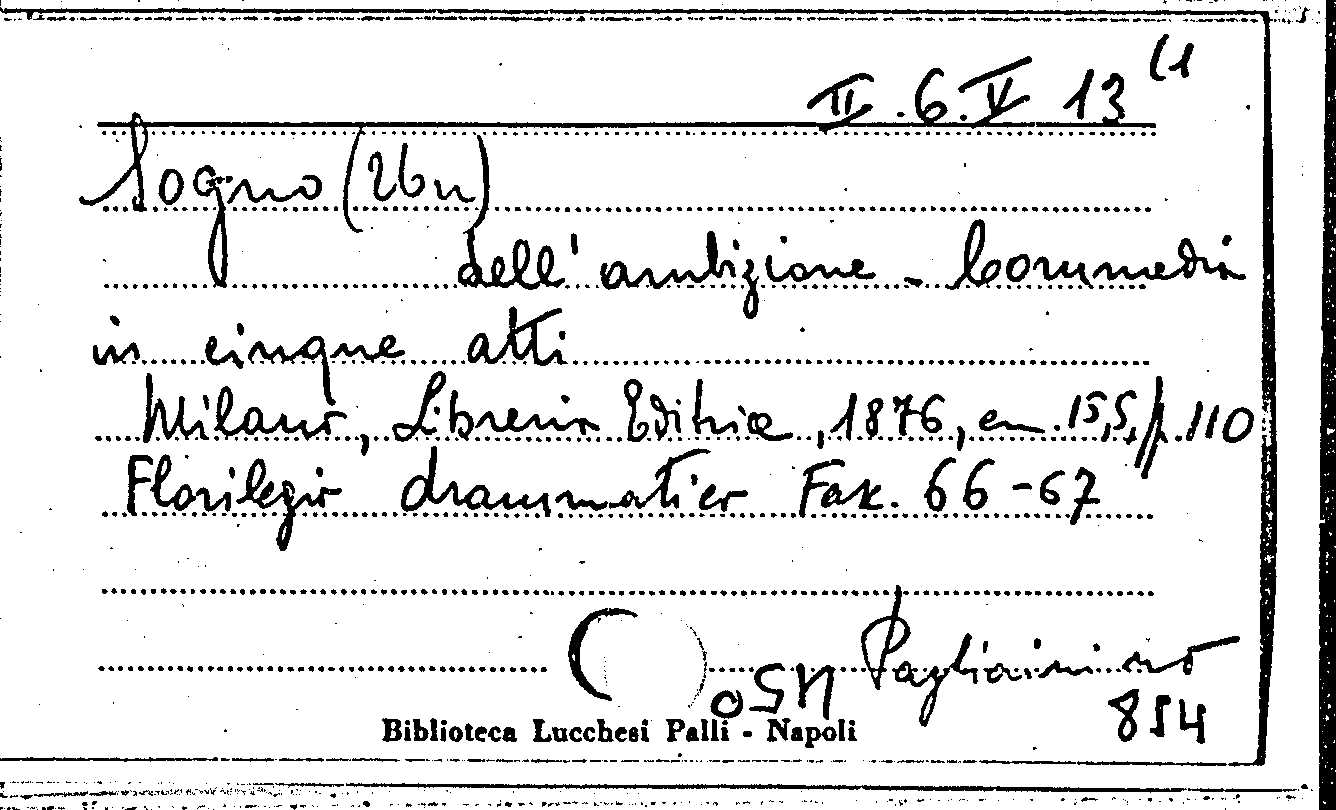 II.6.V 13 (1
Sogno (Un)
dell'ambizione - Commedia
in cinque atti
Milano, Libreria Editrice, 1876, cm. 15,5, p. 110
Florilegio drammatico Fasc. 66-67
854
Biblioteca Lucchesi Palli - Napoli